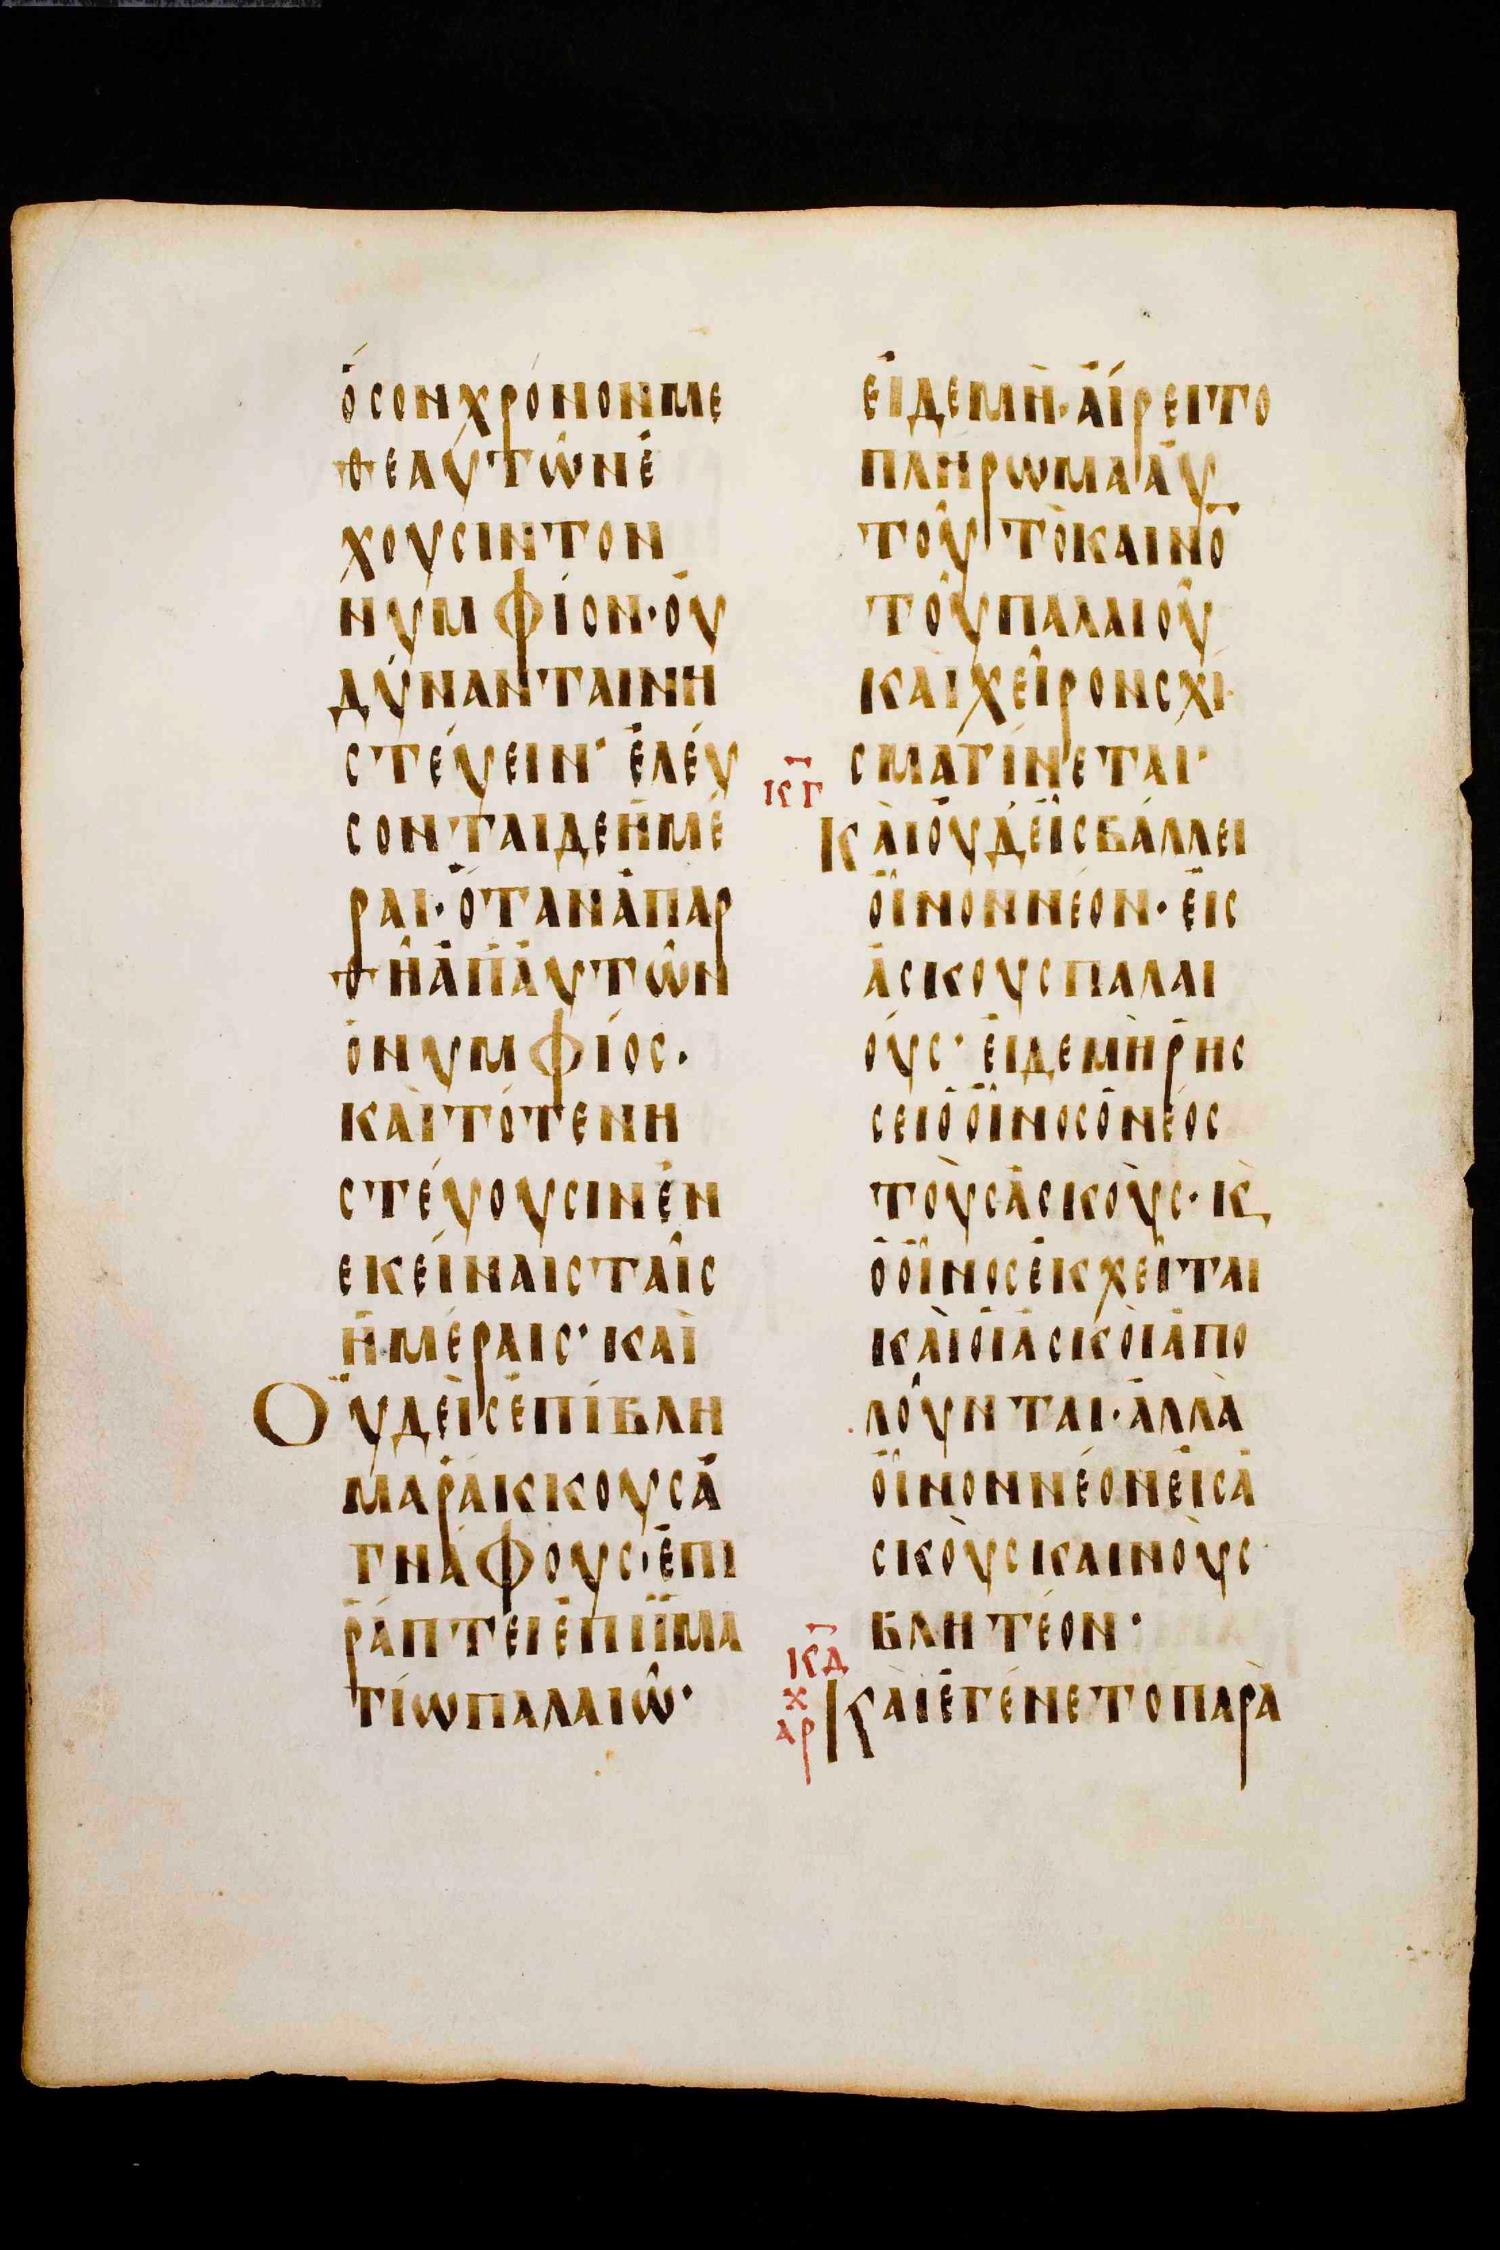 ὅσονχρόνονμε
θεαυτῶνἔ
χουσιντον
νυμφίον·οὐ
δύνανταινη
στέυειν· ἐλέυ
σονταιδεἡμέ
ραι·ὅτανἀπαρ
θῆἀπἀυτῶν
ὁνυμφίος·
καὶτότενη
στέυουσινἐν
εκείναιςταῖς
ἡμέραις· καὶ
Οὐδεὶςἐπίβλη
μαράκκουςἀ
γνάφους·ἐπι
ῥάπτειἐπιἵμα
τίωπαλαιῶ·
εἰδεμὴ·ἄίρειτο
πλήρωμααὐ
τοῦτὸκαινὸ̅
τοῦπαλαιοῦ
καὶχεῖρονσχί
σμαγίνεται·
κ̅γ̅
Καὶοὐδεὶςβάλλει
ὄινοννέον·εἰς
ἀσκουςπαλαι
ούς· εἰδεμὴῥης
σειὁὄινοςὁνέος
τοὺςἀσκοὺς·κ̀
ὁὄινοςἐκχεῖται
καὶοἱἀσκοὶἀπο
λοῦνται·ἀλλὰ
ὄινοννέονεἰςἀ
σκοὺςκαινοὺς
βλητέον·
κ̅δ̅
χ
αρ
Καὶἐγένετοπαρὰ